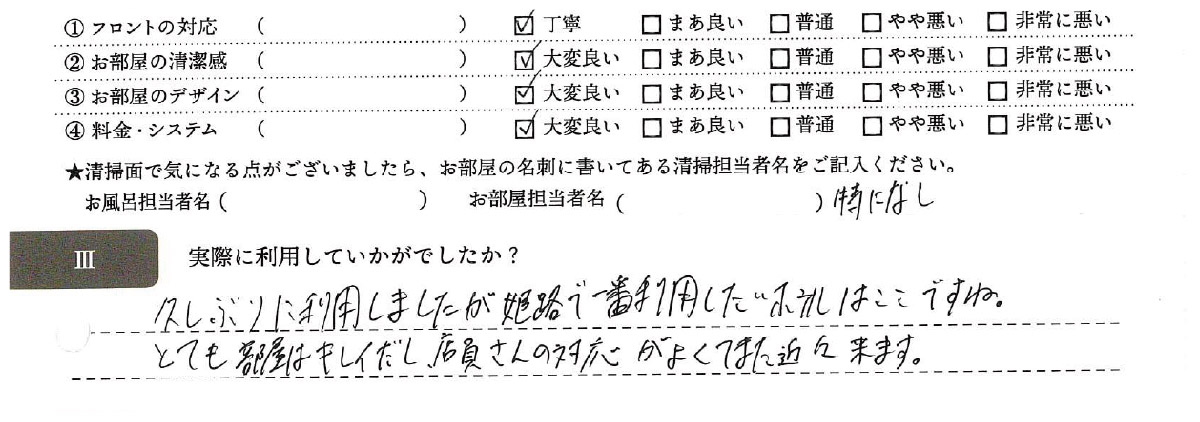 ① フロントの対応 （ ） ☑ 丁寧 □ まあ良い □ 普通 □ やや悪い □ 非常に悪い
② お部屋の清潔感 （ ） ☑ 大変良い □ まあ良い □ 普通 □ やや悪い □ 非常に悪い
③ お部屋のデザイン （ ） ☑ 大変良い □ まあ良い □ 普通 □ やや悪い □ 非常に悪い
④ 料金・システム （ ） ☑ 大変良い □ まあ良い □ 普通 □ やや悪い □ 非常に悪い
★清掃面で気になる点がございましたら、お部屋の名刺に書いてある清掃担当者名をご記入ください。
お風呂担当者名（ ） お部屋担当者名（ ）特になし
Ⅲ 実際に利用していかがでしたか？
久しぶりに利用しましたが姫路で一番利用したいホテルはここですね。
とても部屋はキレイだし、店員さんの対応がよくてまた近々来ます。